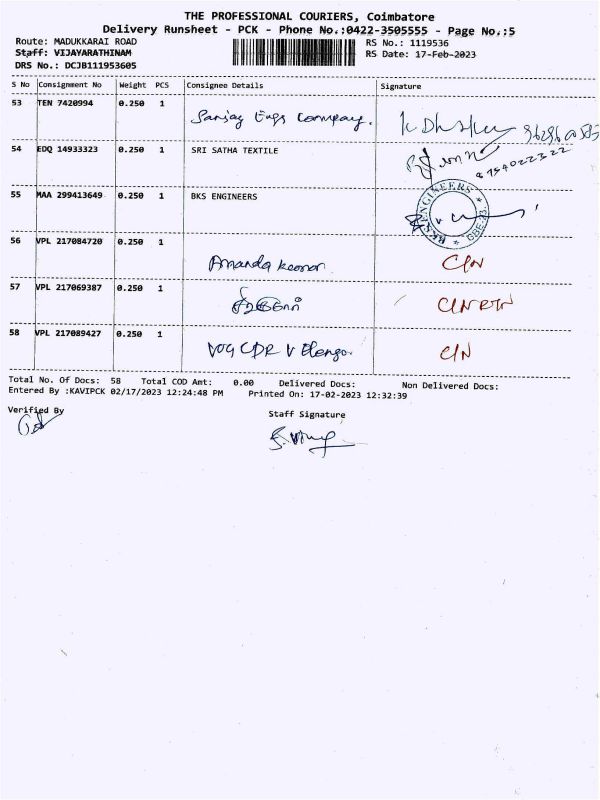 THE PROFESSIONAL COURIERS, Coimbatore
Delivery Runsheet - PCK - Phone No.:0422-3505555 - Page No.;5
Route: MADUKKARAI ROAD RS No.: 1119536
Staff: VIJAYARATHINAM RS Date: 17-Feb-2023
DRS No.: DCJB111953605
S No Consignment No Weight PCS Consignee Details Signature
53 TEN 7420994 0.250 1 Sanjay Engs Company.
54 EDQ 14933323 0.250 1 SRI SATHA TEXTILE 9754022322
55 MAA 299413649 0.250 1 BKS ENGINEERS
56 VPL 217084720 0.250 1 Ananda
57 VPL 217069387 0.250 1
58 VPL 217089427 0.250 1 VOG CDR V Elango
Total No. Of Docs: 58 Total COD Amt: 0.00 Delivered Docs: Non Delivered Docs:
Entered By :KAVIPCK 02/17/2023 12:24:48 PM Printed On: 17-02-2023 12:32:39
Verified By Staff Signature